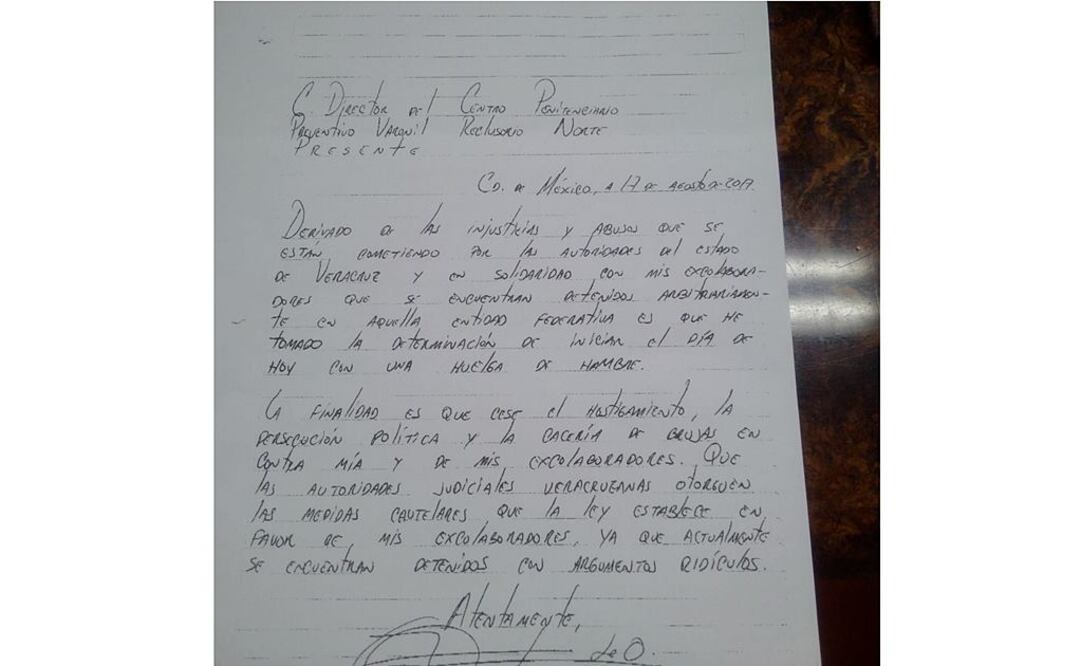 C. Director del Centro Penitenciario
Preventivo Varonil Reclusorio Norte
PRESENTE
CD. de México, a 17 de agosto de 2017.
Derivado de las injusticias y abusos que se
están cometiendo por las autoridades del estado
de Veracruz y en solidaridad con mis excolabora-
dores que se encuentran detenidos arbitrariamen-
te en aquella entidad federativa es que he
tomado la determinación de iniciar el día de
hoy con una huelga de hambre.
La finalidad es que cese el hostigamiento, la
persecución política y la cacería de brujas en
contra mía y de mis excolaboradores. Que
las autoridades judiciales veracruzanas otorguen
las medidas cautelares que la ley establece en
favor de, mis excolaboradores, ya que actualmente
se encuentran detenidos con argumentos ridículos.
Atentamente,
de O.